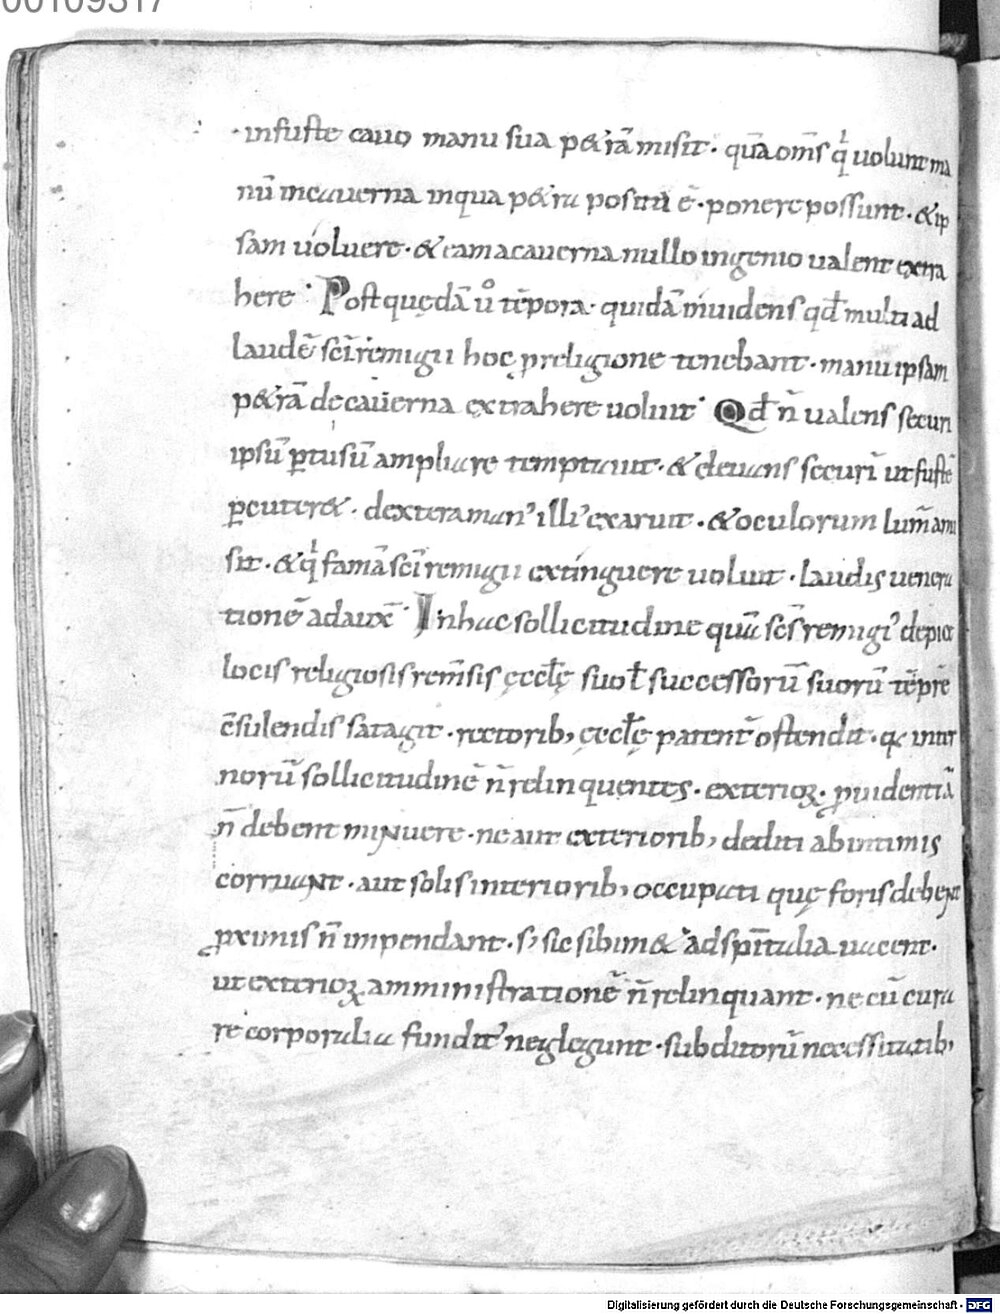 00109317
·in fuste cauo manu sua p&rā misit· quā om̄s q̇ uolunt ma
nū incauerna inqua p&ra posita ē· ponere possunt· &ip
sam uoluere· & eam acauerna nullo ingenio ualent extra
here· Post quędā ů tēpora· quidā inuidens qđ multi ad
laudē sc̄i remigii hoc p̱religione tenebant· manu ipsam
p&rā decauerna extrahere uoluit· Qđ n̄ ualens securi
ipsū p̱tusū ampliare temptauit· & eleuans securī ut fustē
p̱cuter&· dexteraman' illi' exaruit· & oculorum lum̄ ami
sit· &q̇ famā sc̄i remigii extinguere uoluit· laudis uenera
tionē adaux̄· Inhac sollicitudine quā sc̄s remigi' depic
locis religiosis rem̄sis ęccłę suoꝝ successorū suorū tēpr̄e
c̄sulendis satagit· rectorib; ęccłę patent̄ ostendit· qđ inter
norū sollicitudinē n̄ relinquentes· exterioꝝ· p̱uidentiā
n̄ debent minuere· ne aut exteriorib; dediti abintimis
corruant· aut solis interiorib; occupati quę foris debent
p̱ximis n̄ impendant· s; sic sibim& ad sp̄italia uacent·
ut exterioꝝ amministrationē n̄ relinquant· ne cū cura
re corporalia fundit' neglegunt· subditorū necessitatib;
Digitalisierung gefördert durch die Deutsche Forschungsgemeinschaft - DFG